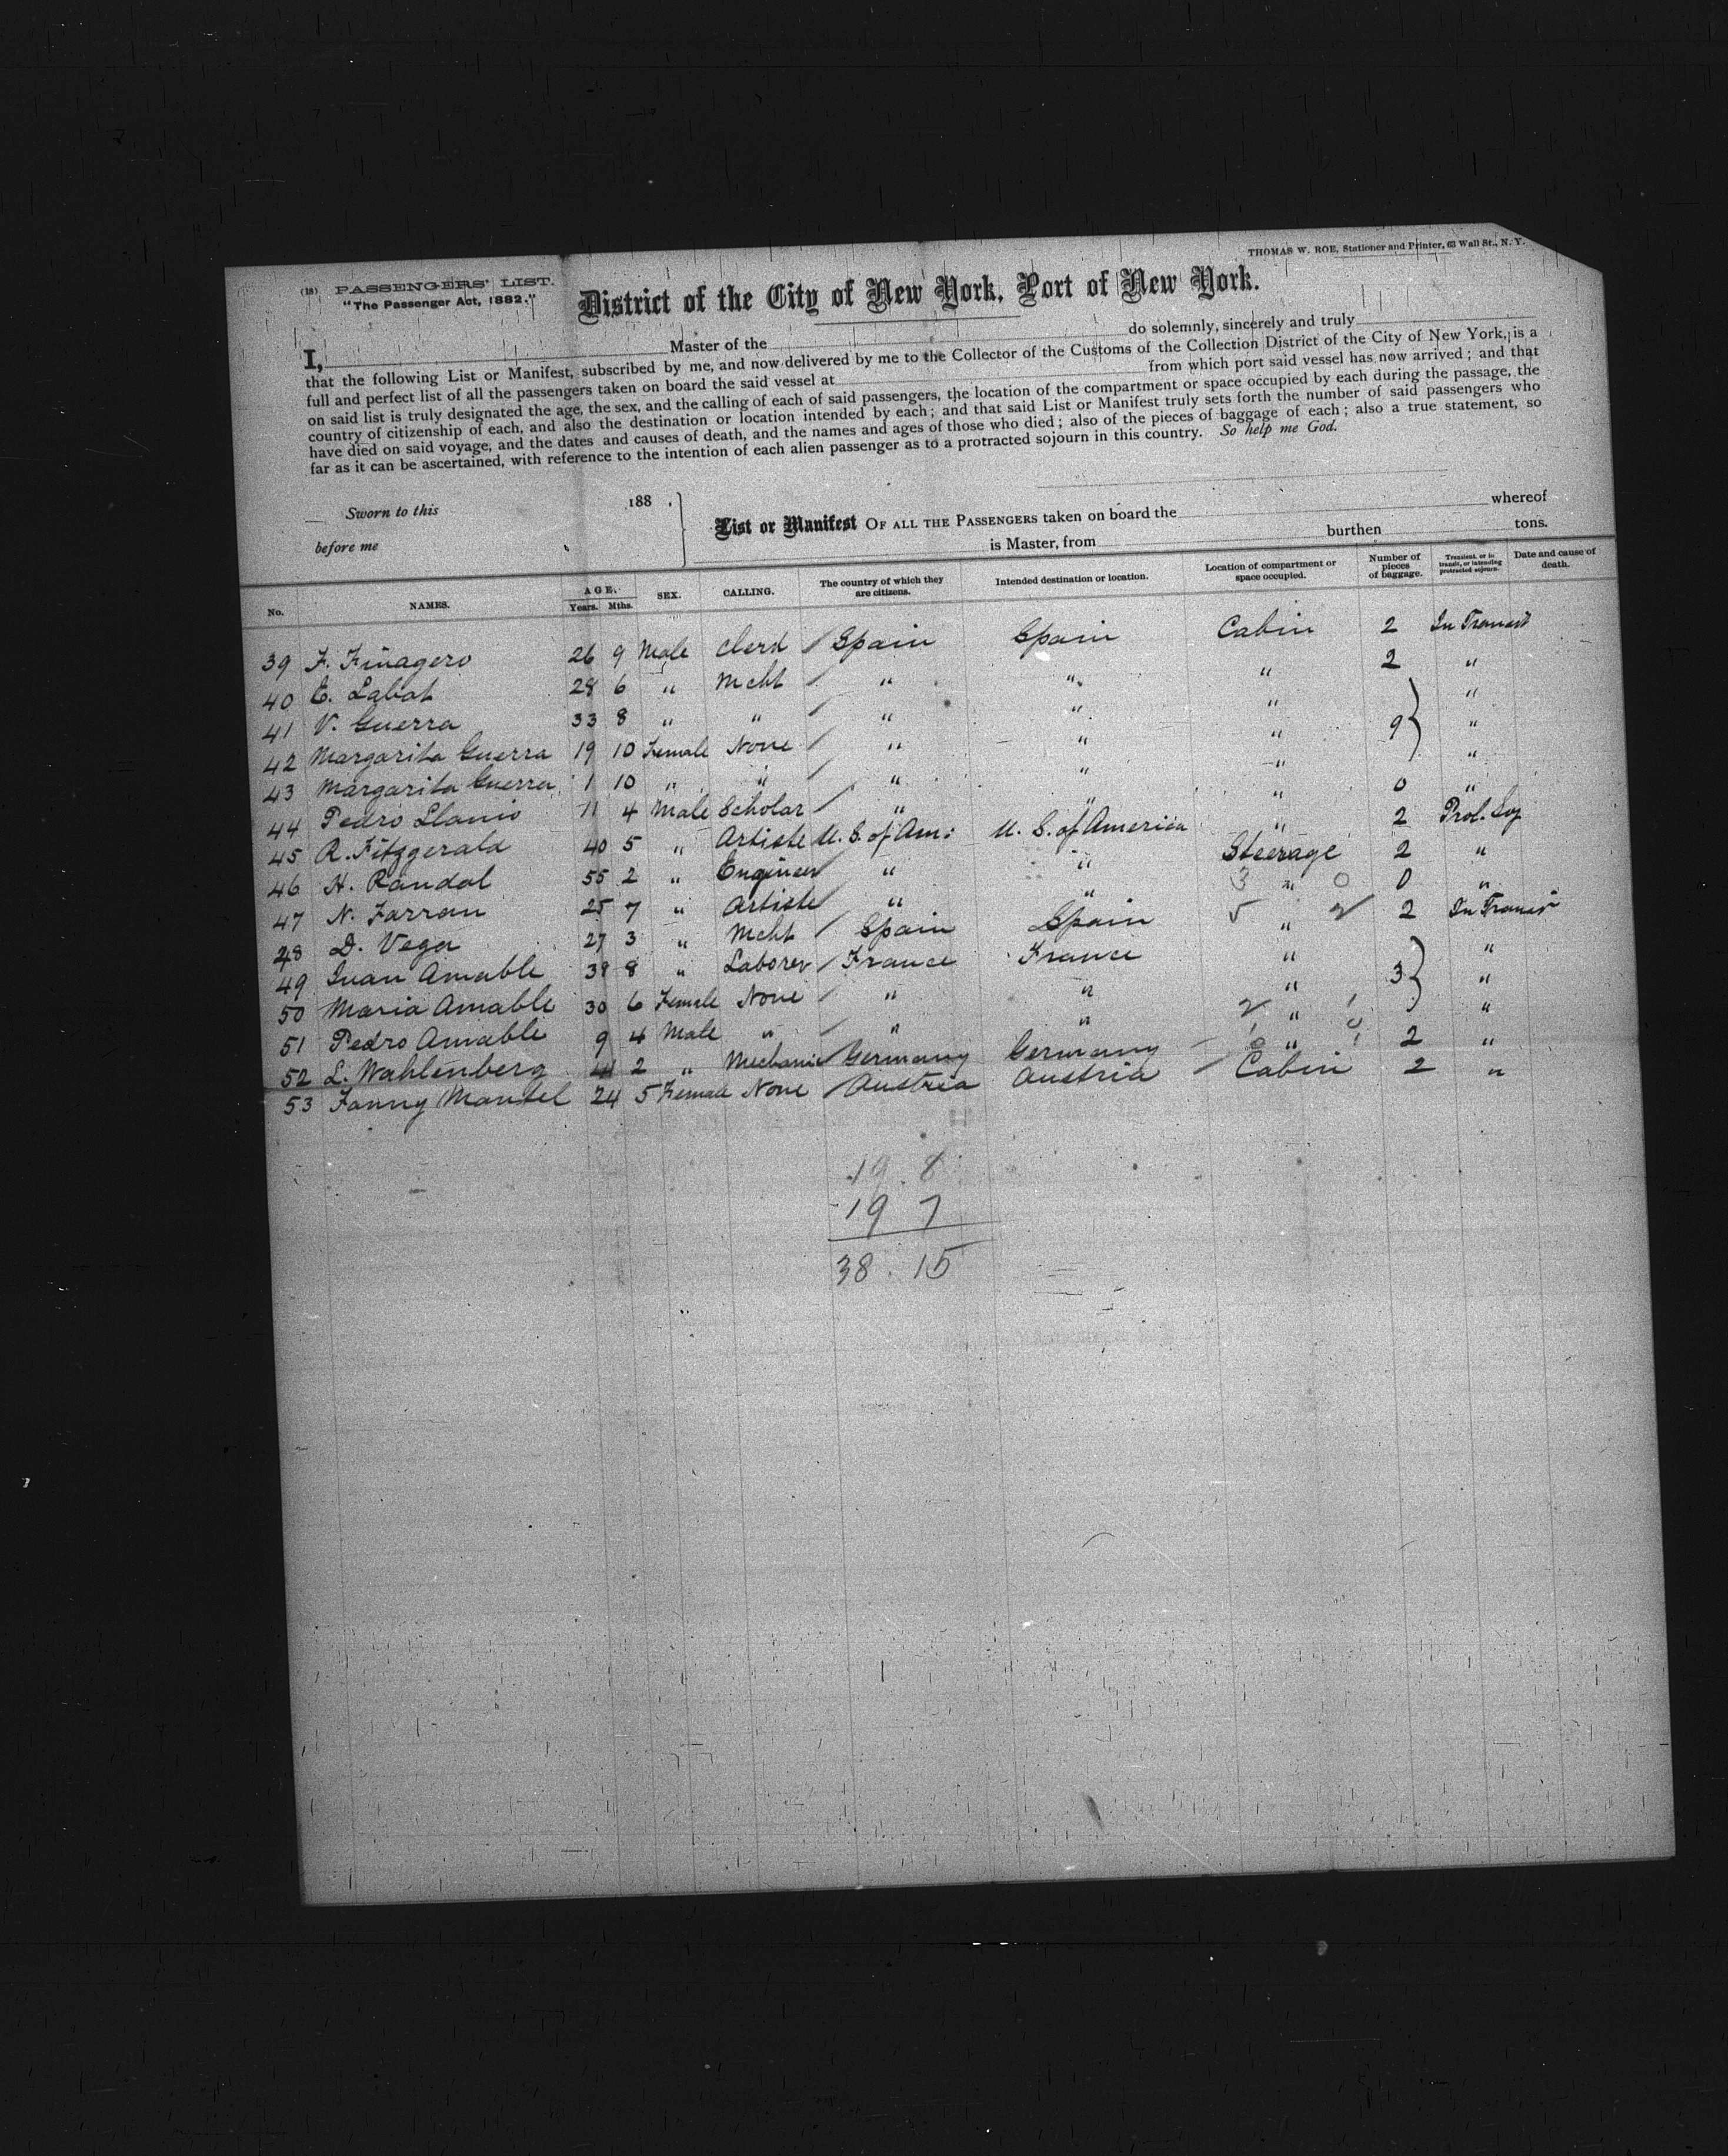 THOMAS W. ROE, Stationer and Printer, 63 Wall St., N. Y.
(18) PASSENGERS' LIST.
"The Passenger Act, 1882."
District of the City of New York, Port of New York.
I, Master of the do solemnly, sincerely and truly
that the following List or Manifest, subscribed by me, and now delivered by me to the Collector of the Customs of the Collection District of the City of New York, is a
full and perfect list of all the passengers taken on board the said vessel at from which port said vessel has now arrived; and that
on said list is truly designated the age, the sex, and the calling of each of said passengers, the location of the compartment or space occupied by each during the passage, the
country of citizenship of each, and also the destination or location intended by each; and that said List or Manifest truly sets forth the number of said passengers who
have died on said voyage, and the dates and causes of death, and the names and ages of those who died; also of the pieces of baggage of each; also a true statement, so
far as it can be ascertained, with reference to the intention of each alien passenger as to a protracted sojourn in this country. So help me God.
Sworn to this 188 .
before me
List or Manifest OF ALL THE PASSENGERS taken on board the whereof
is Master, from burthen tons.
No. NAMES. AGE. Years. Mths. SEX. CALLING. The country of which they are citizens. Intended destination or location. Location of compartment or space occupied. Number of pieces of baggage. Transient, or in transit, or intending protracted sojourn. Date and cause of death.
39 F. Finagero 26 9 Male Clerk / Spain Spain Cabin 2 In Transit
40 E. Labat 28 6 " Mcht / " " " 2 "
41 V. Guerra 33 8 " " / " " " "
42 Margarita Guerra 19 10 Female None / " " " 9 "
43 Margarita Guerra 1 10 " " / " " " "
44 Pedro Llanio 11 4 Male Scholar / " " " 0 "
45 R. Fitzgerald 40 5 " Artiste U. S. of Am: U. S. of America " 2 Prol. Soj
46 H. Randal 55 2 " Engineer " " Steerage 2 "
47 N. Farran 25 7 " Artiste " " 3 " 0 0 "
48 D. Vega 27 3 " Mcht / Spain Spain 5 " 2 2 In Transit
49 Juan Amable 38 8 " Laborer / France France " "
50 Maria Amable 30 6 Female None / " " " 3 "
51 Pedro Amable 9 4 Male " / " " 2 " 1 "
52 L. Wahlenberg 44 2 " Mechanic Germany Germany " 2 "
53 Fanny Mantel 24 5 Female None / Austria Austria Cabin 2 "
19 . 8
19 7
38 . 15